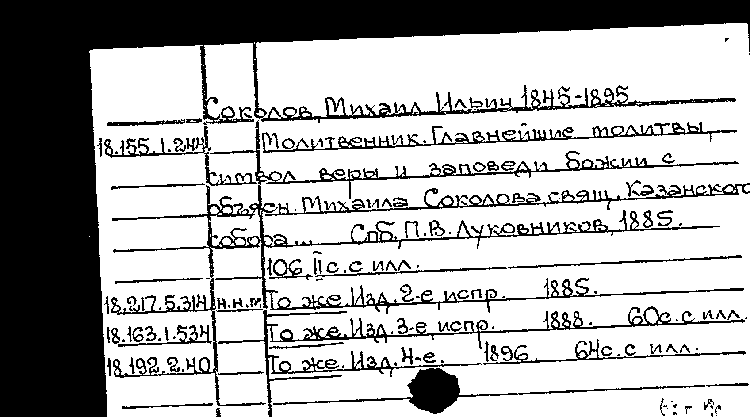 Соколов, Михаил Ильич, 1845-1895.
18.155.1.244. Молитвенник. Главнейшие молитвы,
символ веры и заповеди божии с
объясн. Михаила Соколова, свящ. Казанского
собора... Спб, П.В. Луковников, 1885.
106, II с. с илл.
18.217.5.314 н.н.т То же. Изд. 2-е, испр. 1885.
18.163.1.534 То же. Изд. 3-е, испр. 1888. 60с. с илл.
18.192.2.40 То же. Изд. 4-е. 1896. 64с. с илл.